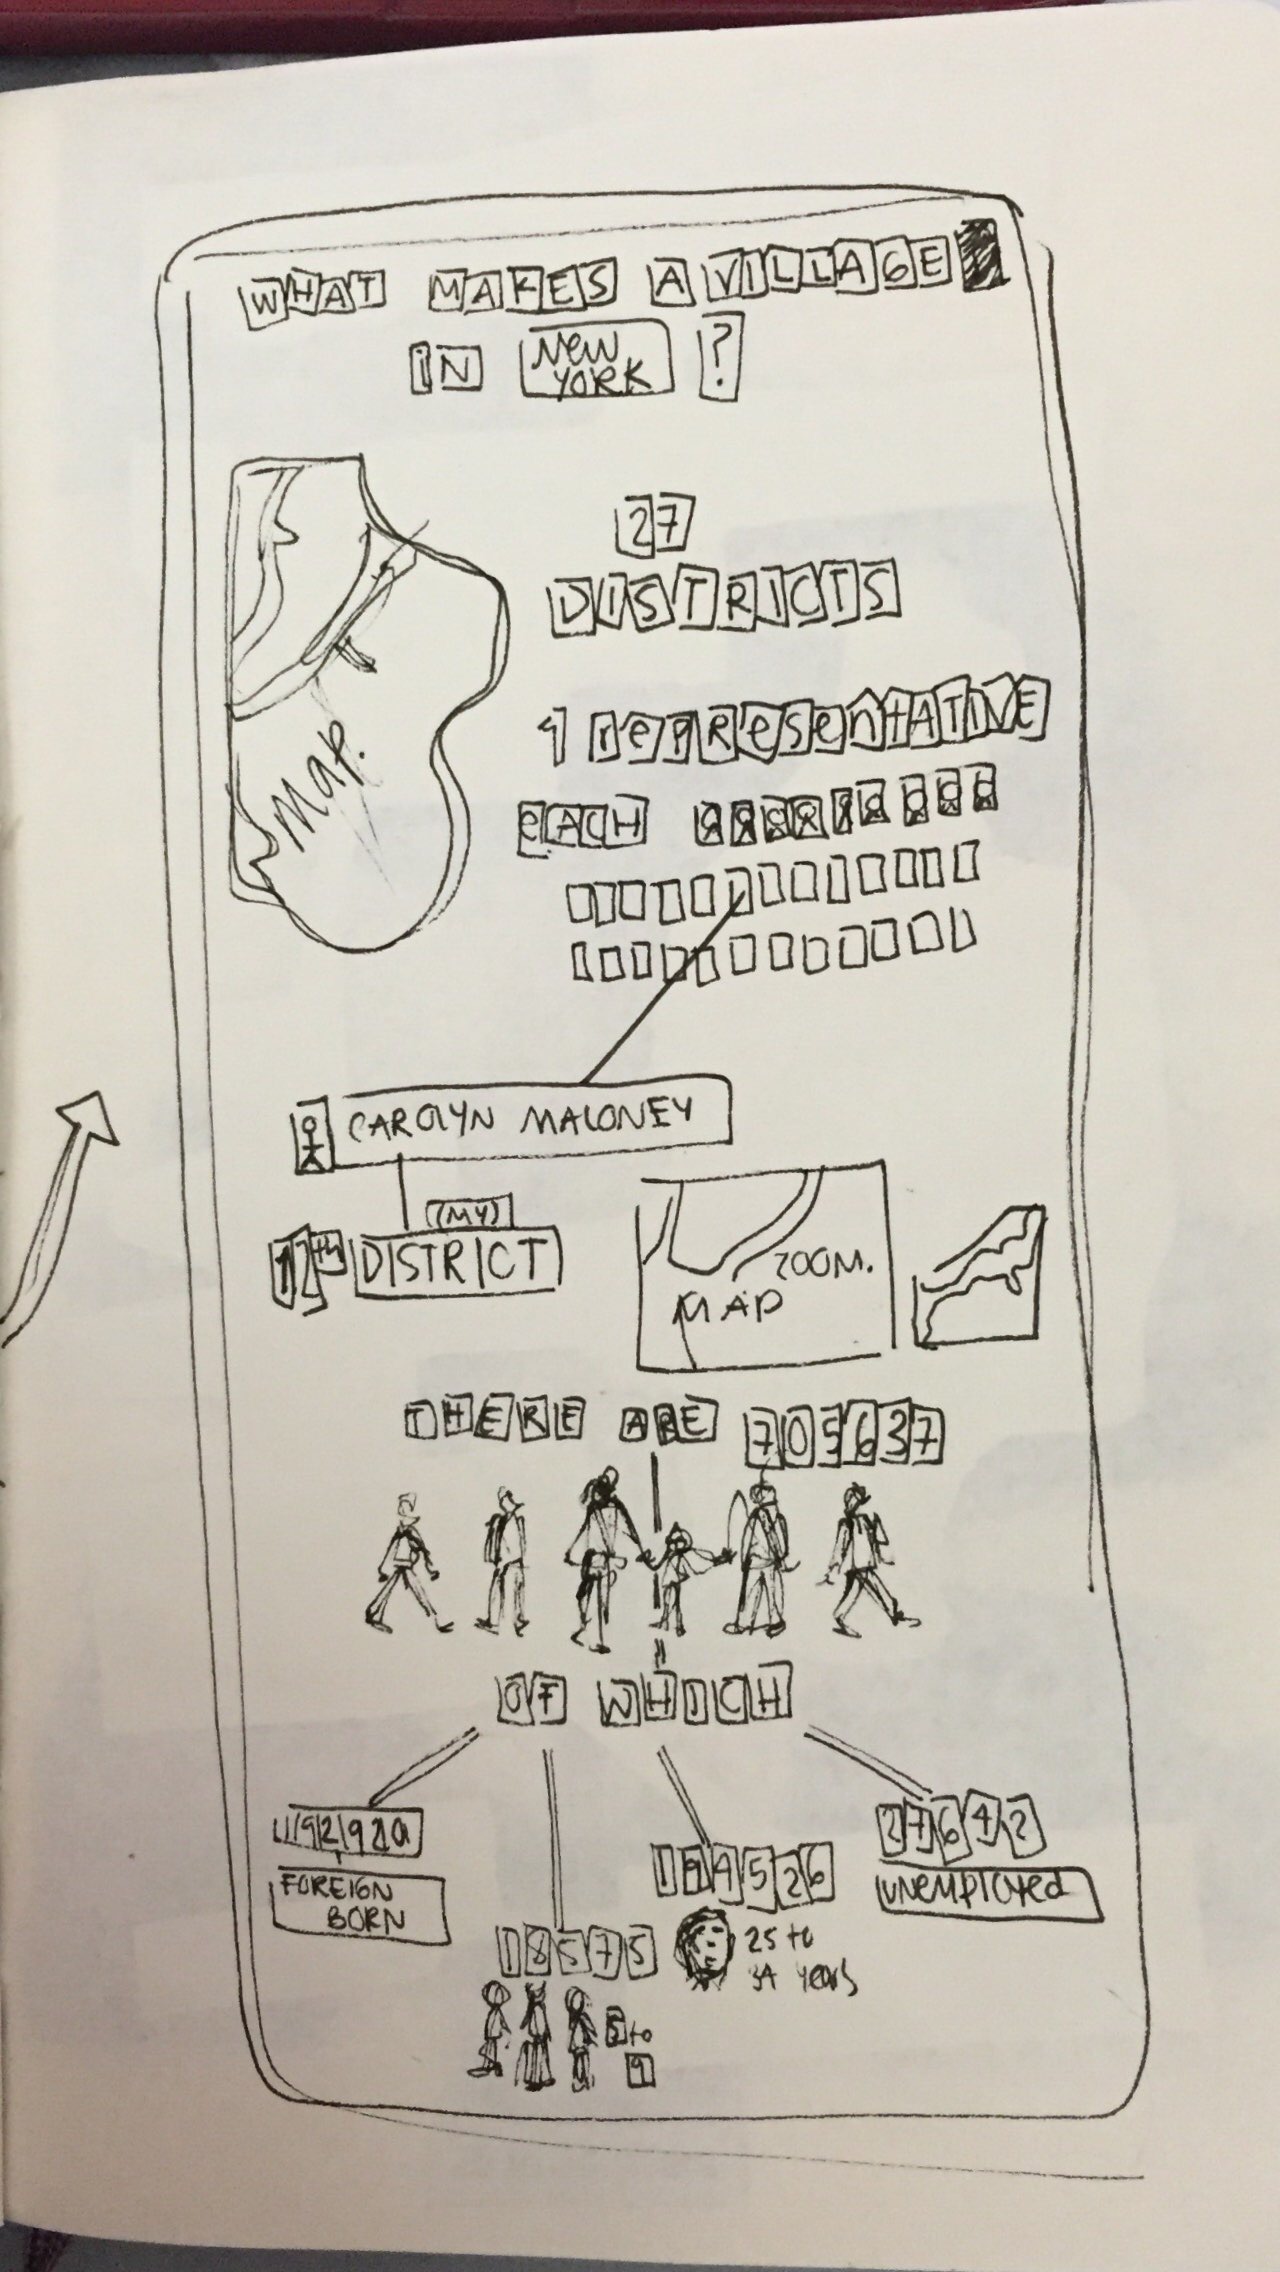 WHAT MAKES A VILLAGE
IN NEW YORK ?
27
DISTRICTS
1 rePResentATIVE
eACH
Map.
CAROLYN MALONEY
(MY)
12th DISTRICT
ZOOM.
MAP
THERE ARE 705637
OF WHICH
FOREIGN
BORN
18575
5 to
9
25 to
34 years
27642
UNemPLOYed